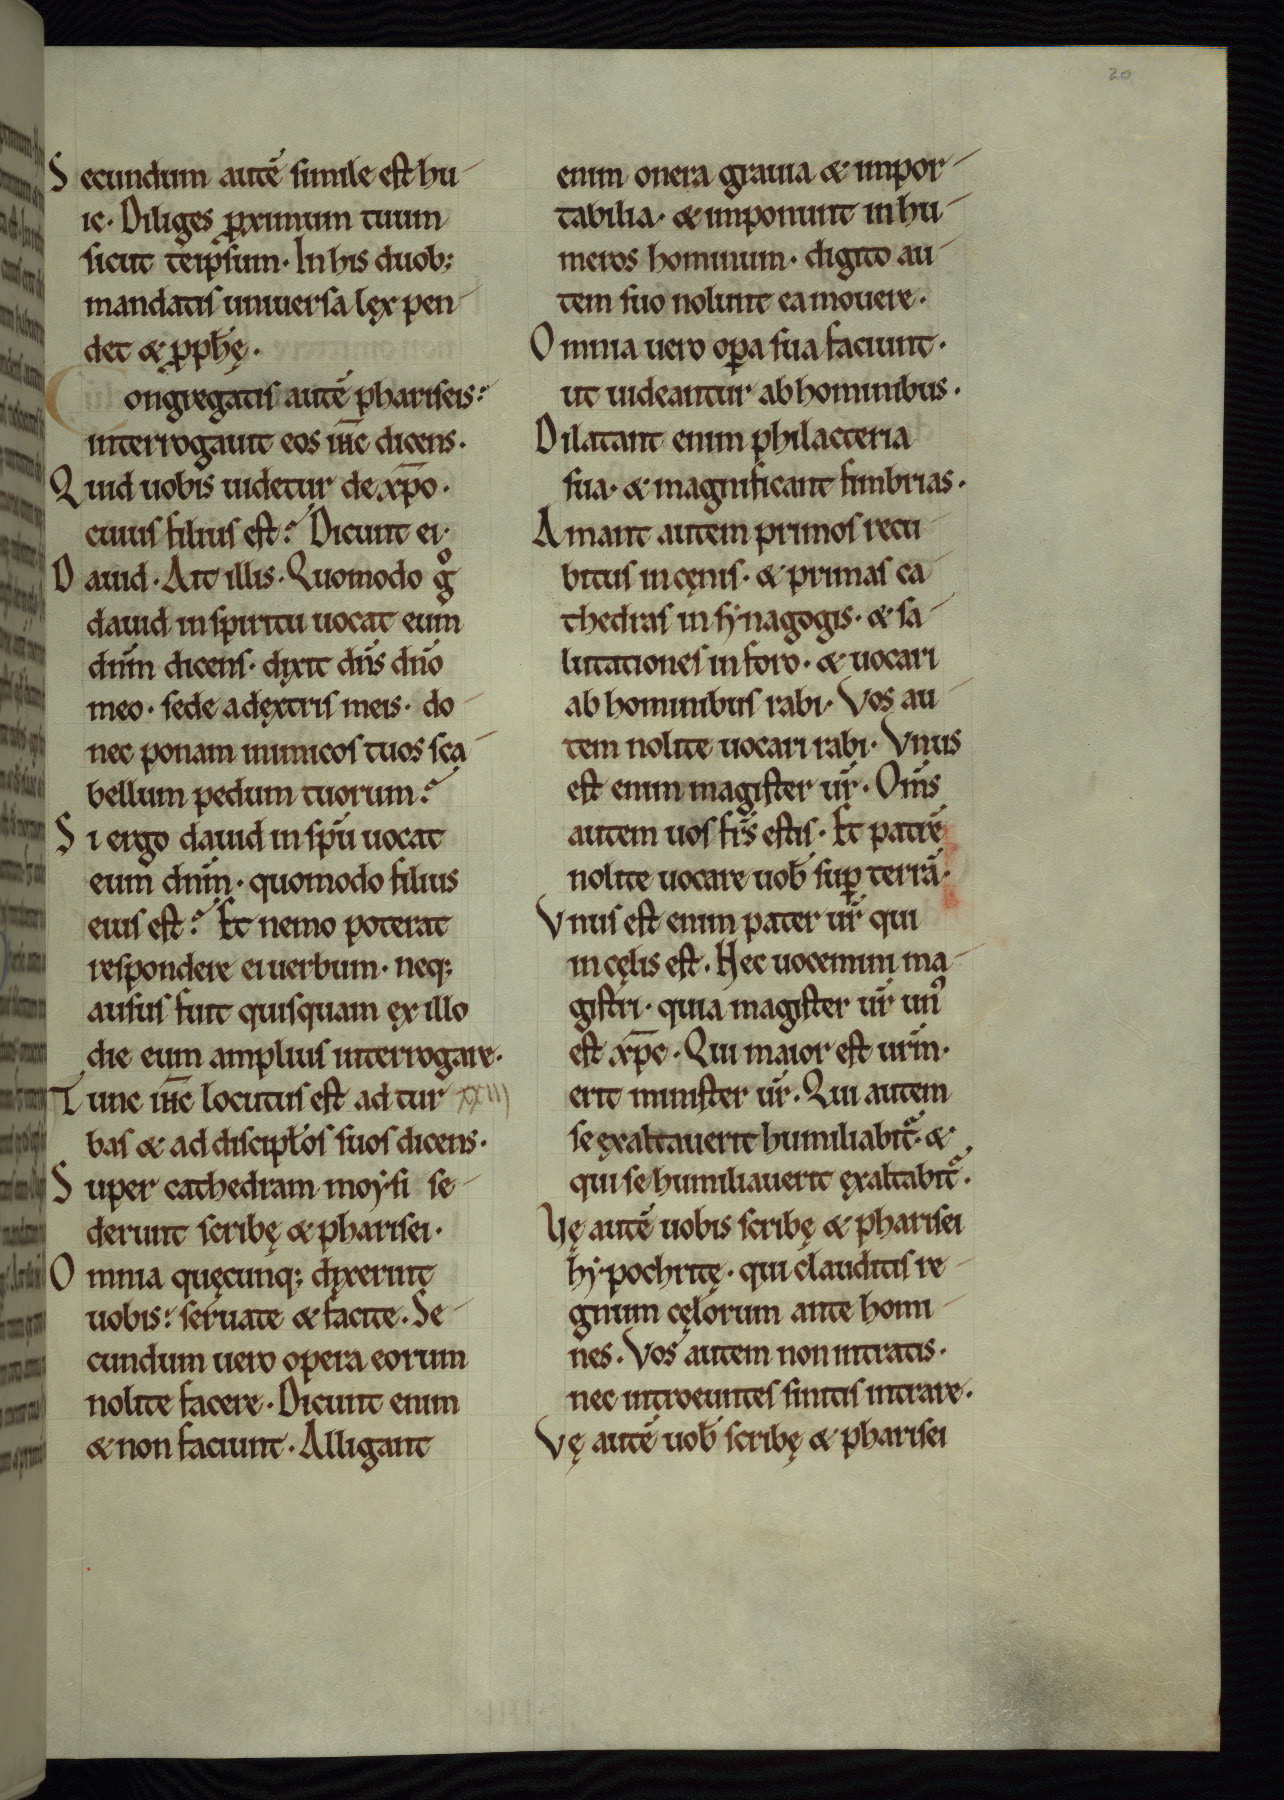 20
Secundum autē simile est hu
ic· Diliges ꝓximum tuum
sicut teipsum· In his duob;
mandatis uniuersa lęx pen
det & ꝓpħę·
Congregatis autē phariseis:
interrogauit eos iħc dicens·
Quid uobis uidetur de xp̄o·
cuius filius est? Dicunt ei·
Dauid· Ait illis· Quomodo gͦ
dauid in spiritu uocat eum
dn̄m dicens· dixit dn̄s dn̄o
meo· sede a dęxtris meis· do
nec ponam inimicos tuos sca
bellum pedum tuorum?
Si ergo dauid in sp̄u uocat
eum dn̄m· quomodo filius
eius est? Et nemo poterat
respondere ei uerbum· neq;
ausus fuit quisquam ęx illo
die eum amplius interrogare·
Tunc iħc locutus est ad tur XXIII
bas & ad discipłos suos dicens·
Super cathedram moẏsi se
derunt scribę & pharisei·
Omnia quęcunq; dixerint
uobis: seruate & facite· Se
cundum uero opera eorum
nolite facere· Dicunt enim
& non faciunt· Alligant
enim onera grauia & impor
tabilia· & imponunt in hu
meros hominum· digito au
tem suo nolunt ea mouere·
Omnia uero oꝑa sua faciunt·
ut uideantur ab hominibus·
Dilatant enim philacteria
sua· & magnificant fimbrias·
Amant autem primos recu
bitus in cęnis· & primas ca
thedras in sẏnagogis· & sa
lutationes in foro· & uocari
ab hominibus rabi· Vos au
tem nolite uocari rabi· Vnus
est enim magister ur̄· Om̄s
autem uos fr̄s estis· Et patrē
nolite uocare uob̄ suꝑ terrā·
Vnus est enim pater ur̄ qui
in cęlis est· Nec uocemini ma
gistri· quia magister ur̄ unꝰ
est xp̄c· Qui maior est ur̄m·
erit minister ur̄· Qui autem
se ęxaltauerit humiliabit᷑· &
qui se humiliauerit ęxaltabit᷑·
Vę autē uobis scribę & pharisei
hẏpochritę· qui clauditis re
gnum cęlorum ante homi
nes· Vos autem non intratis·
nec introeuntes sinitis intrare·
Vę autē uob̄ scribę & pharisei